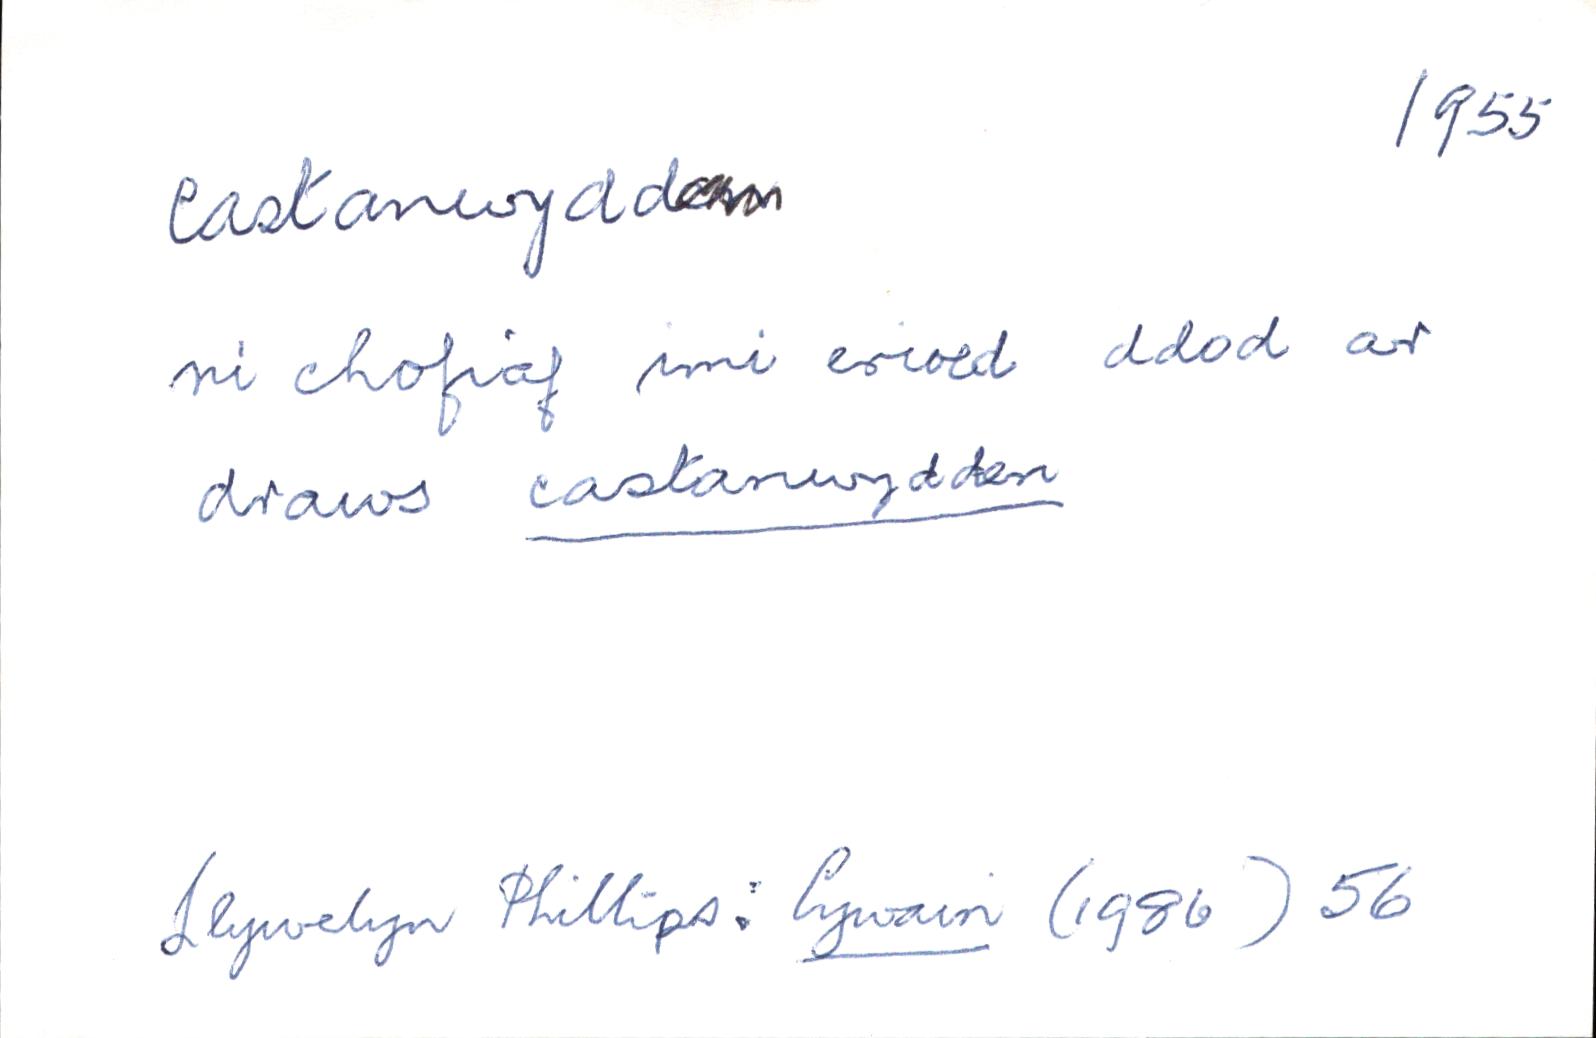 1955
castanwydden
ni chofiaf imi erioed ddod ar
draws castanwydden
Llywelyn Phillips: Cywain (1986) 56